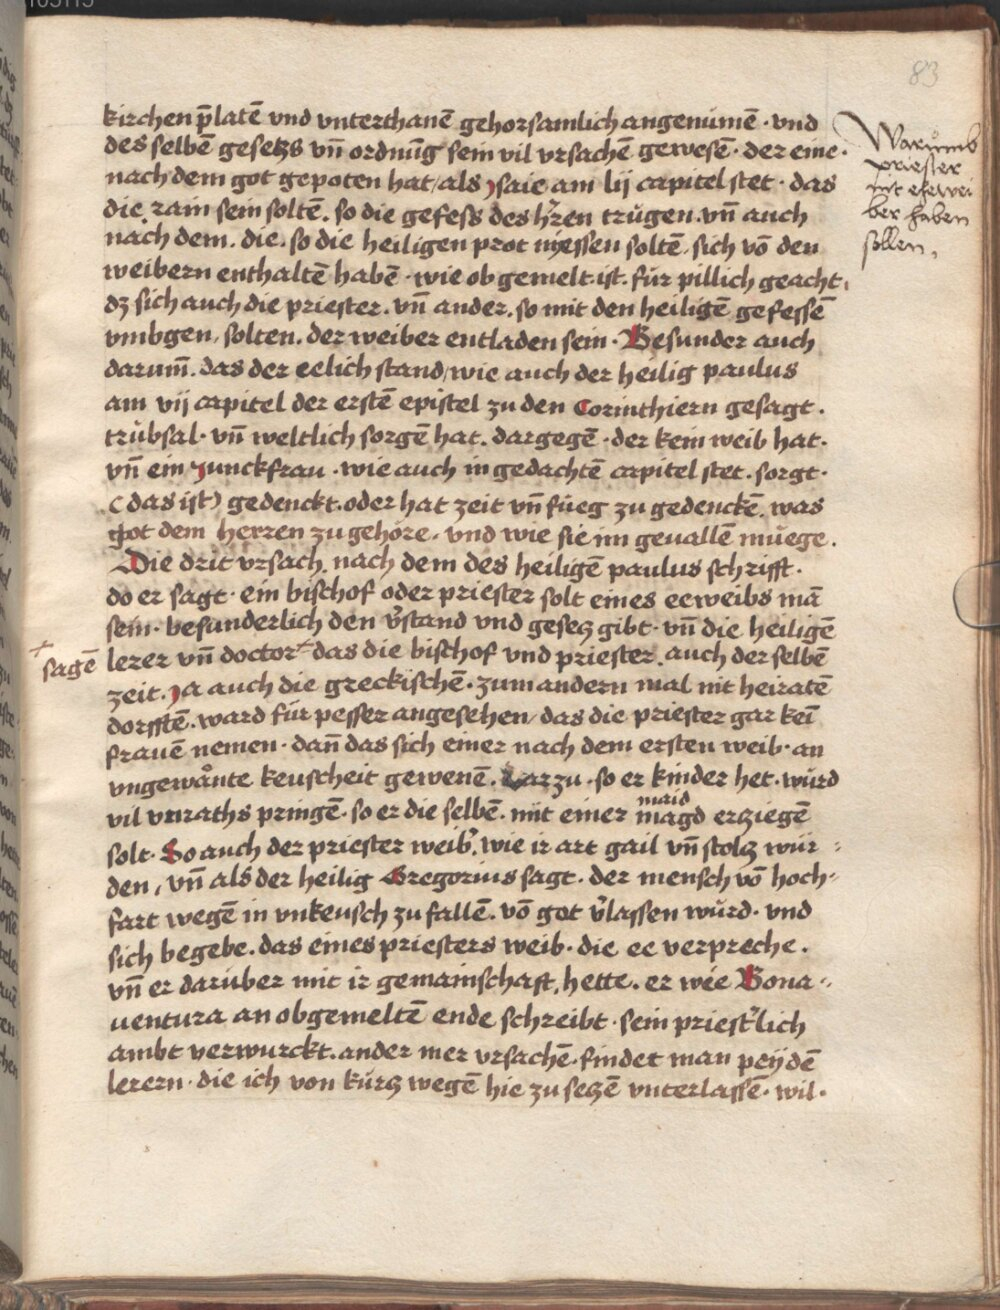 83
kirchen p̄latē vnd vnterthanē gehorsamlich angenum̄ē · vnd
des selbē gesetzs vn̄ ordnūg sein vil vrsachē gewesē · der eine ·
nach dem got gepoten hat / als ysaie am lij capitel stet · das
die rain sein soltē . so die gefess des hr̄en trůgen . vn̄ auch
nach dem . die . so die heiligen prot myessen soltē . sich vō den
weibern enthaltē habē · wie obgemelt ist . für pillich geacht .
dz sich auch die priester . vn̄ ander . so mit den heiligē gefessē
vmbgen , solten . der weiber entladen sein · Besunder auch
darum̄ . das der eelich stand / wie auch der heilig paulus
am vij capitel der erstē epistel zu den Corinthiern gesagt .
trůbsal · vn̄ weltlich sorgē hat . dargegē · der kein weib hat .
vn̄ ein Junckfrau · wie auch in gedachtē capitel stet . sorgt ·
( das ist ) gedenckt . oder hat zeit vn̄ fueg zu gedenckē . was
got dem herren zu gehöre . vnd wie sie im geuallē müege .
Die drit vrsach . nach dem des heiligē paulus schrifft .
do er sagt · ein bischof oder priester solt eines eeweibs mā
sein · besunderlich den v̄stand vnd gesetz gibt · vn̄ die heiligē
lerer vn̄ doctor + das die bischof vnd priester . auch der selbē
zeit . Ja auch die greckischē · zum andern mal nit heiratē
dorfftē . ward für pesser angesehen / das die priester gar kei͞
frauē nemen · dan̄ das sich einer nach dem ersten weib · an
vngewånte keuscheit gewenē . Darzu · so er kinder het . wůrd
vil vnraths pringē · so er die selbē . mit einer magd erziegē
maid
solt · So auch der priester weib̓ . wie ir art gail vn̄ stoltz wür :
den , vn̄ als der heilig Gregorius sagt . der mensch vō hoch :
fart wegē in vnkeusch zu fallē . vō got v̄lassen wůrd · vnd
sich begebe . das eines priesters weib · die ee verpreche .
vn̄ er darüber mit ir gemainschaft , hette . er wie Bona :
uentura an obgemeltē ende schreibt · sein priest̓lich
ambt verwurckt . ander mer vrsachē · findet man pey dē
lerern · die ich von kürtz wegē hie zu setzē vnterlassē . wil .
Warůmb
priester
nit ehewei
ber haben
sollen .
+ sagē